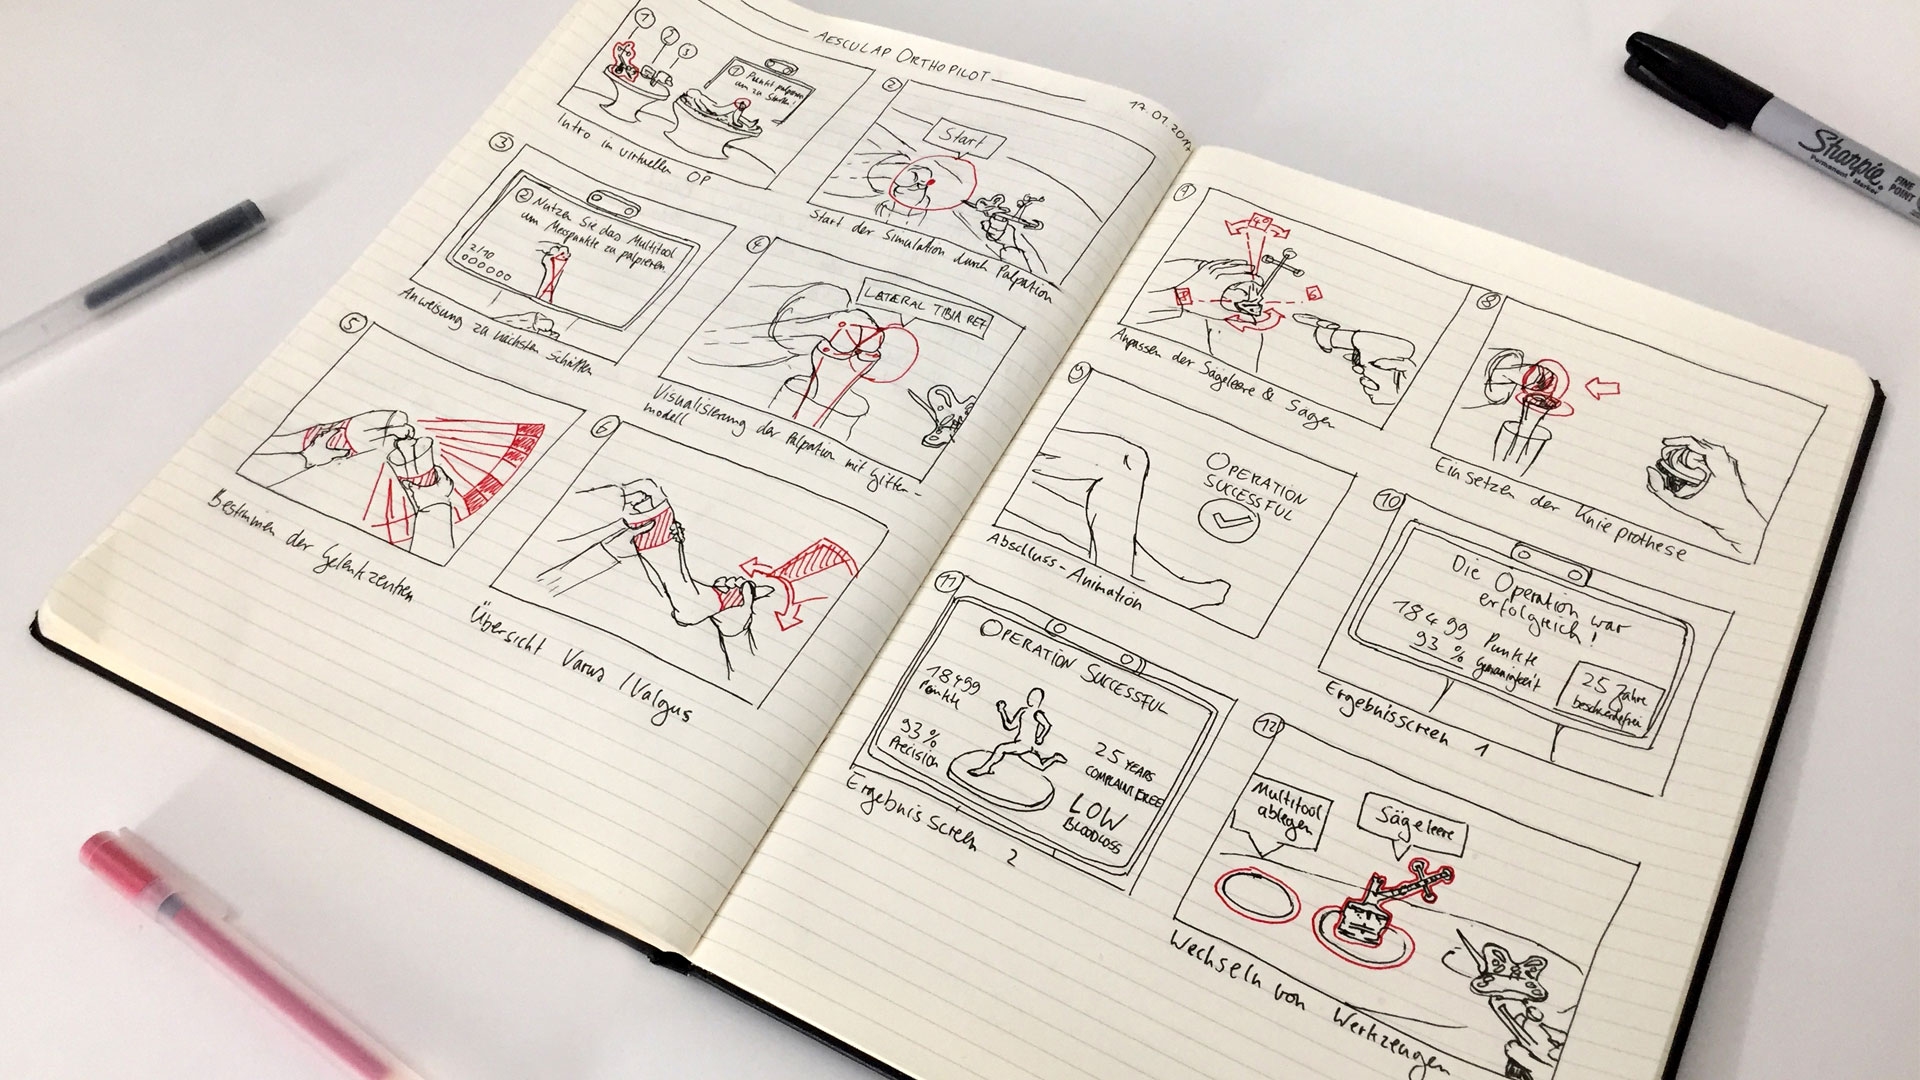 AESCULAP ORTHOPILOT
17.01.2017
1
1
2
3
1 Punkt palpieren
um zu Starten!
Intro in virtuellen OP
2
Start
Start der Simulation durch Palpation
3
2 Nutzen Sie das Multitool
um Messpunkte zu palpieren.
2/10
Anweisung zu nächsten Schritten
4
LATERAL TIBIA REF
Visualisierung der Palpation mit Gitter-
modell
5
Bestimmen der Gelenkzentren
6
Übersicht Varus / Valgus
4°
Anpassen der Sägeleere & Sägen
8
Einsetzen der Knieprothese
9
OPERATION
SUCCESSFUL
Abschluss-Animation
10
Die Operation war
erfolgreich!
18499 Punkte
93 % Genauigkeit
25 Jahre
beschwerdefrei
Ergebnisscreen 1
11
OPERATION SUCCESSFUL
18499
Punkte
93 %
Precision
25 YEARS
COMPLAINT FREE
LOW
BLOODLOSS
Ergebnisscreen 2
12
Multitool
ablegen
Sägeleere
Wechseln von Werkzeugen
Sharpie
Permanent Marker
FINE
POINT